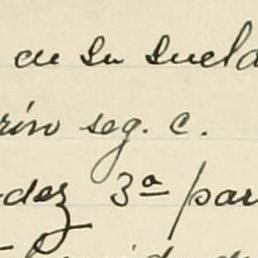 en su sueld
rión seg. c.
dez 3ª par